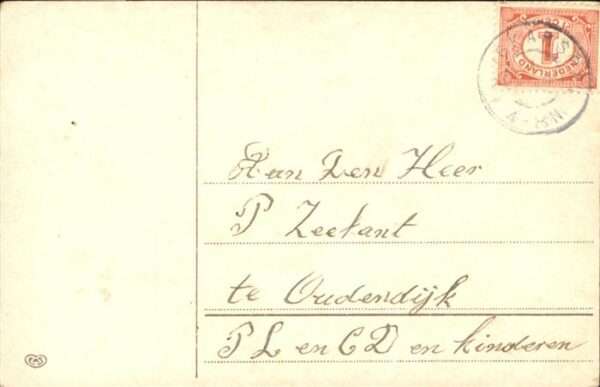 1
NEDERLAND
Aan Den Heer
P Zeelant
te Oudendijk
P L en C D en kinderen